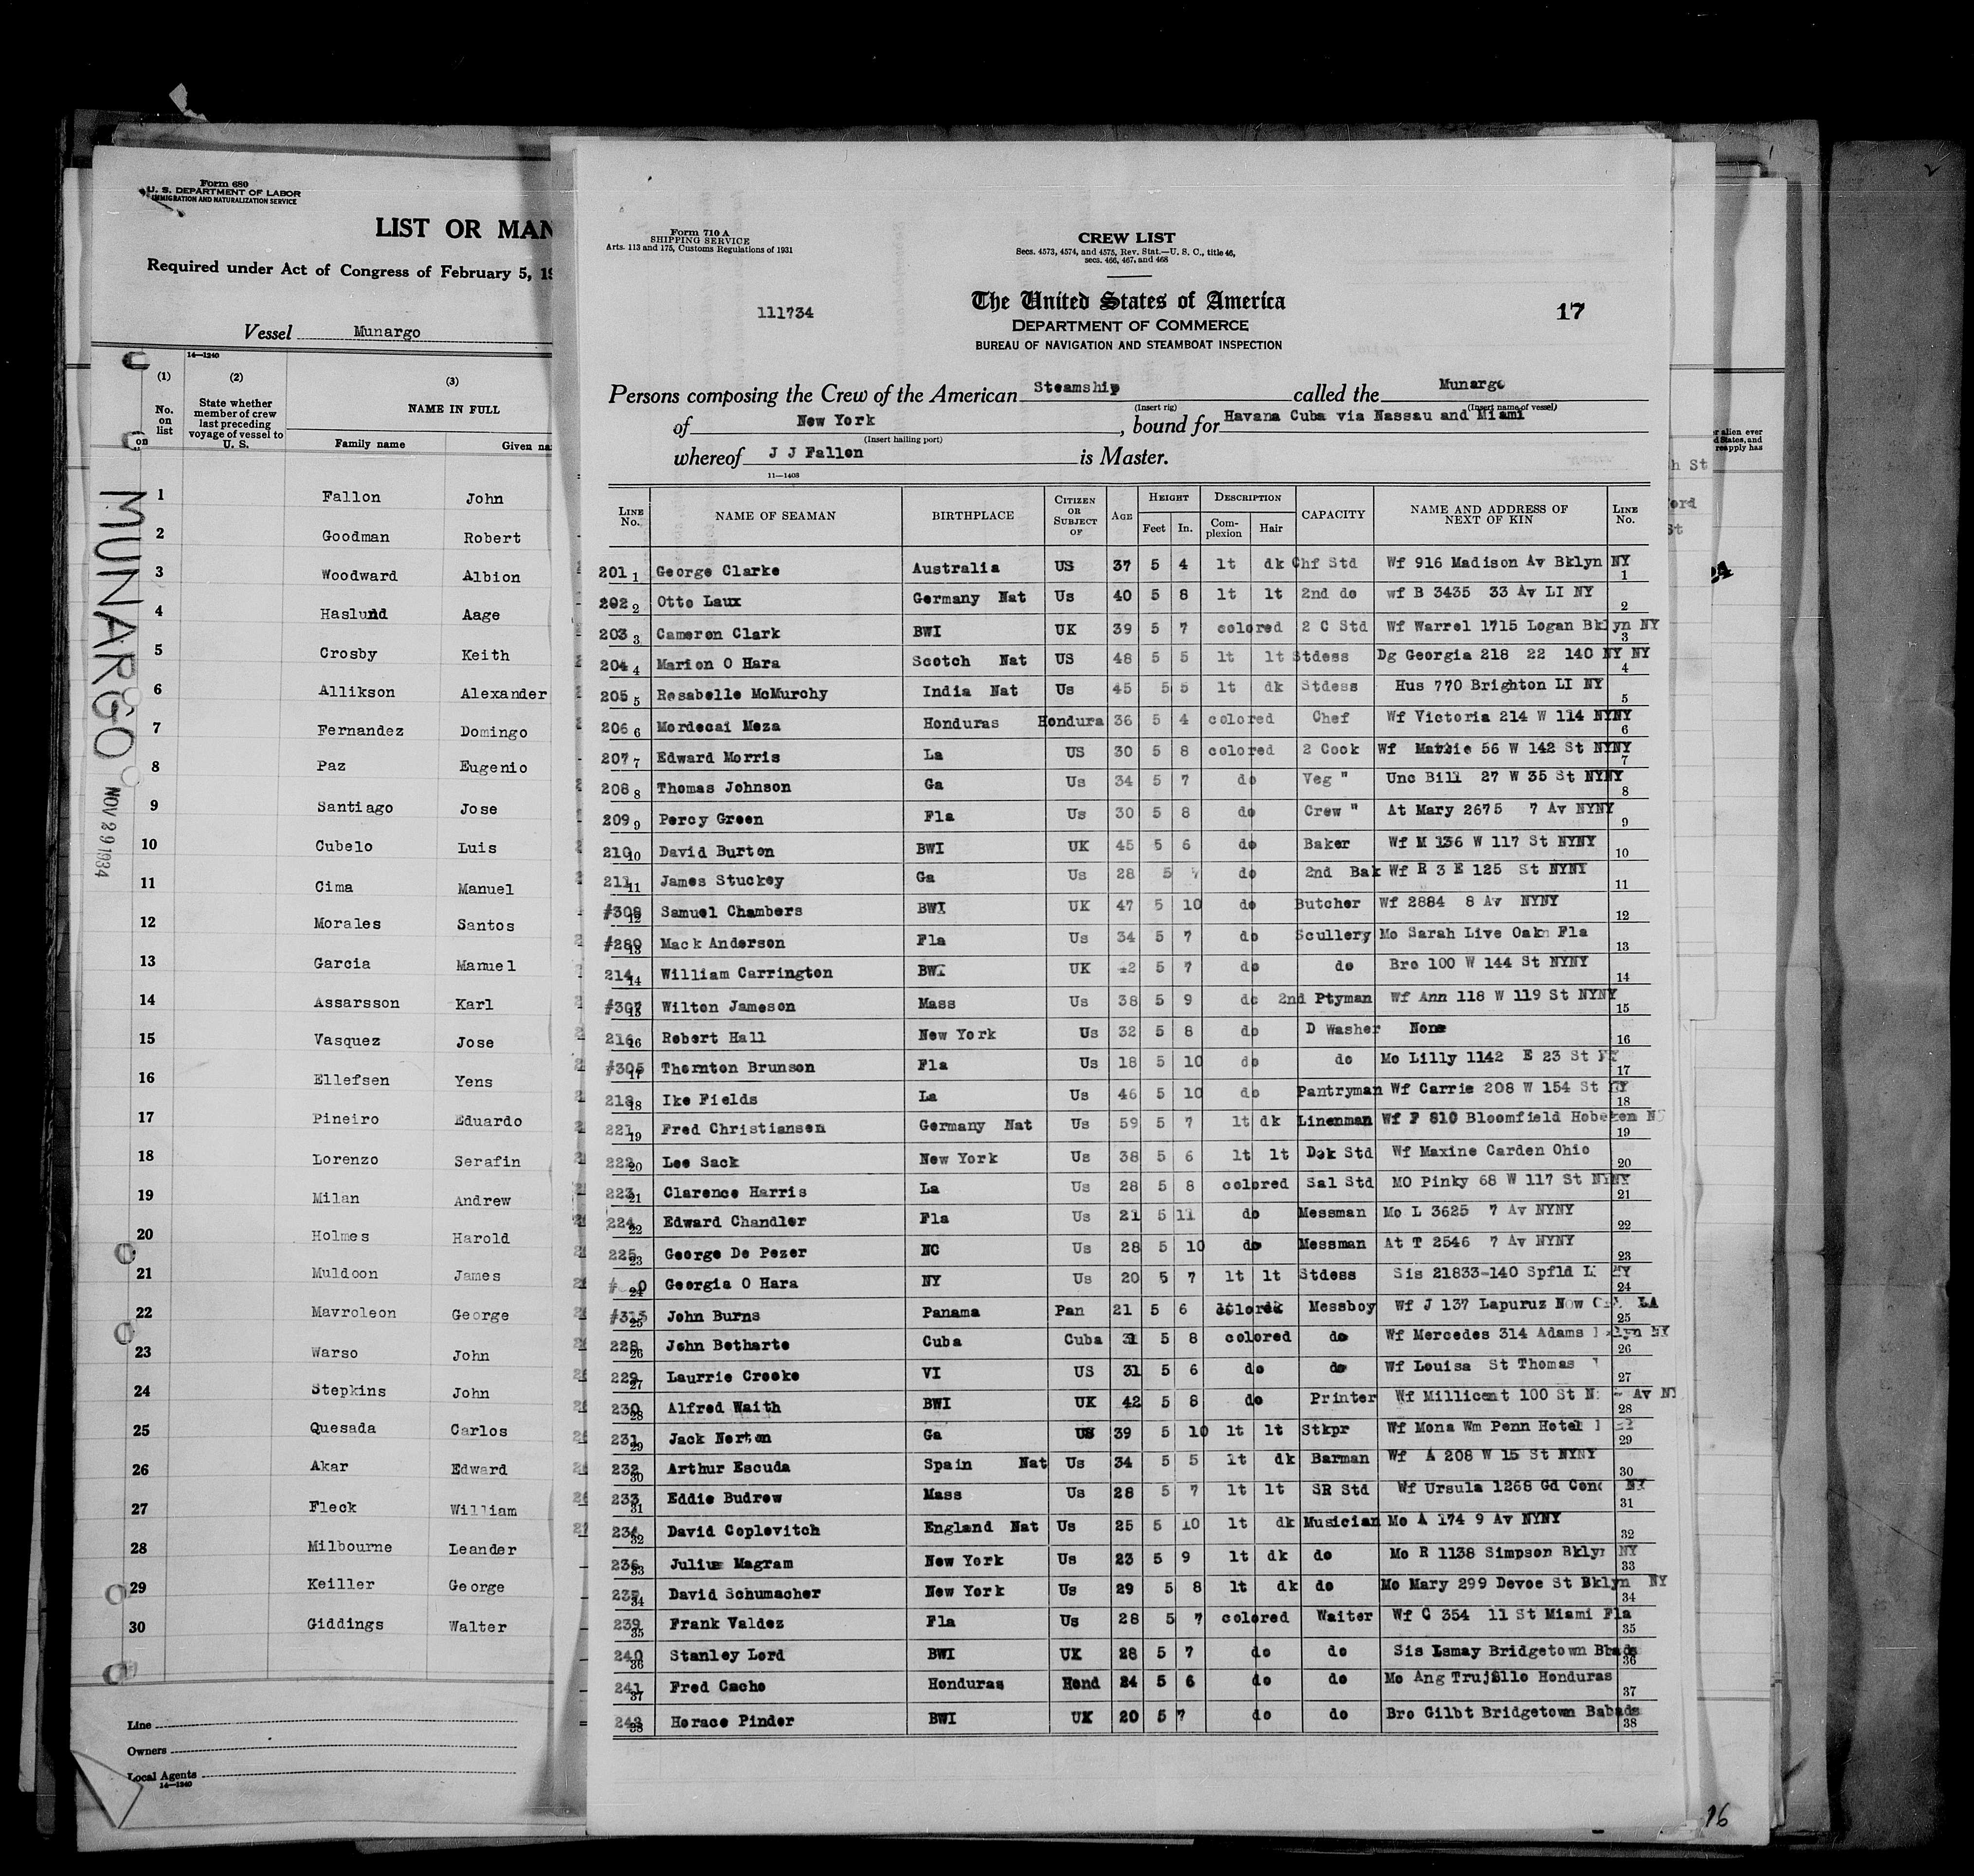 Form 680
U. S. DEPARTMENT OF LABOR
IMMIGRATION AND NATURALIZATION SERVICE
LIST OR MAN
Required under Act of Congress of February 5, 19
Vessel Munargo
14—1240
(1) (2) (3)
No. on list State whether member of crew last preceding voyage of vessel to U. S. NAME IN FULL
Family name Given na
1 Fallon John
2 Goodman Robert
3 Woodward Albion
4 Haslund Aage
5 Crosby Keith
6 Allikson Alexander
7 Fernandez Domingo
8 Paz Eugenio
9 Santiago Jose
10 Cubelo Luis
11 Cima Manuel
12 Morales Santos
13 Garcia Manuel
14 Assarsson Karl
15 Vasquez Jose
16 Ellefsen Yens
17 Pineiro Eduardo
18 Lorenzo Serafin
19 Milan Andrew
20 Holmes Harold
21 Muldoon James
22 Mavroleon George
23 Warso John
24 Stepkins John
25 Quesada Carlos
26 Akar Edward
27 Fleck William
28 Milbourne Leander
29 Keiller George
30 Giddings Walter
Line
Owners
Local Agents
14—1240
MUNARGO
NOV 29 1934
Form 710 A
SHIPPING SERVICE
Arts. 113 and 175, Customs Regulations of 1931
CREW LIST
Secs. 4573, 4574, and 4575, Rev. Stat.—U. S. C., title 46,
secs. 466, 467, and 468
111734
The United States of America
17
DEPARTMENT OF COMMERCE
BUREAU OF NAVIGATION AND STEAMBOAT INSPECTION
Persons composing the Crew of the American Steamship called the Munargo
(Insert rig) (Insert name of vessel)
of New York, bound for Havana Cuba via Nassau and Miami
(Insert hailing port)
whereof J J Fallon is Master.
11—1408
LINE No. NAME OF SEAMAN BIRTHPLACE CITIZEN OR SUBJECT OF AGE HEIGHT Feet In. DESCRIPTION Complexion Hair CAPACITY NAME AND ADDRESS OF NEXT OF KIN LINE No.
201 1 George Clarke Australia US 37 5 4 lt dk Chf Std Wf 916 Madison Av Bklyn NY 1
202 2 Otto Laux Germany Nat Us 40 5 8 lt lt 2nd do wf B 3435 33 Av LI NY 2
203 3 Cameron Clark BWI UK 39 5 7 colored 2 C Std Wf Warrel 1715 Logan Bklyn NY 3
204 4 Marion O Hara Scotch Nat US 48 5 5 lt lt Stdess Dg Georgia 218 22 140 NY NY 4
205 5 Rosabelle McMurchy India Nat Us 45 5 5 lt dk Stdess Hus 770 Brighton LI NY 5
206 6 Mordecai Meza Honduras Hondura 36 5 4 colored Chef Wf Victoria 214 W 114 NYNY 6
207 7 Edward Morris La US 30 5 8 colored 2 Cook Wf 56 W 142 St NYNY 7
208 8 Thomas Johnson Ga Us 34 5 7 do Veg " Unc Bill 27 W 35 St NYNY 8
209 9 Percy Green Fla Us 30 5 8 do Crew " At Mary 2675 7 Av NYNY 9
210 10 David Burton BWI UK 45 5 6 do Baker Wf M 136 W 117 St NYNY 10
211 11 James Stuckey Ga Us 28 5 7 do 2nd Bak Wf R 3 E 125 St NYNY 11
#308 12 Samuel Chambers BWI UK 47 5 10 do Butcher Wf 2884 8 Av NYNY 12
#280 13 Mack Anderson Fla Us 34 5 7 do Scullery Mo Sarah Live Oak Fla 13
214 14 William Carrington BWI UK 42 5 7 do do Bro 100 W 144 St NYNY 14
#307 15 Wilton Jameson Mass Us 38 5 9 do 2nd Ptyman Wf Ann 118 W 119 St NYNY 15
216 16 Robert Hall New York Us 32 5 8 do D Washer None 16
#305 17 Thornton Brunson Fla Us 18 5 10 do do Mo Lilly 1142 E 23 St NY 17
218 18 Ike Fields La Us 46 5 10 do Pantryman Wf Carrie 208 W 154 St NY 18
221 19 Fred Christiansen Germany Nat Us 59 5 7 lt dk Linenman Wf F 810 Bloomfield Hoboken NJ 19
222 20 Lee Sack New York Us 38 5 6 lt lt Dek Std Wf Maxine Carden Ohio 20
223 21 Clarence Harris La Us 28 5 8 colored Sal Std MO Pinky 68 W 117 St NYNY 21
224 22 Edward Chandler Fla Us 21 5 11 do Messman Mo L 3625 7 Av NYNY 22
225 23 George De Pezer NC Us 28 5 10 do Messman At T 2546 7 Av NYNY 23
24 Georgia O Hara NY Us 20 5 7 lt lt Stdess Sis 21833-140 Spfld LI NY 24
#313 25 John Burns Panama Pan 21 5 6 Messboy Wf J 137 Lapuruz Now LA 25
228 26 John Betharte Cuba Cuba 31 5 8 colored do Wf Mercedes 314 Adams Bklyn NY 26
229 27 Laurrie Crooke VI US 31 5 6 do do Wf Louisa St Thomas 27
230 28 Alfred Waith BWI UK 42 5 8 do Printer Wf Millicent 100 St N Av NY 28
231 29 Jack Norton Ga US 39 5 10 lt lt Stkpr Wf Mona Wm Penn Hotel 29
232 30 Arthur Escuda Spain Nat Us 34 5 5 lt dk Barman Wf A 208 W 15 St NYNY 30
233 31 Eddie Budrow Mass Us 28 5 7 lt lt SR Std Wf Ursula 1268 Gd Conc NY 31
234 32 David Coplovitch England Nat Us 25 5 10 lt dk Musician Mo A 174 9 Av NYNY 32
236 33 Julius Magram New York Us 23 5 9 lt dk do Mo R 1138 Simpson Bklyn NY 33
237 34 David Schumacher New York Us 29 5 8 lt dk do Mo Mary 299 Devoe St Bklyn NY 34
239 35 Frank Valdez Fla Us 28 5 7 colored Waiter Wf C 354 11 St Miami Fla 35
240 36 Stanley Lord BWI UK 28 5 7 do do Sis Esmay Bridgetown Bbads 36
241 37 Fred Cacho Honduras Hond 24 5 6 do do Mo Ang Trujillo Honduras 37
242 38 Horace Pinder BWI UK 20 5 7 do do Bro Gilbt Bridgetown Babads 38
16